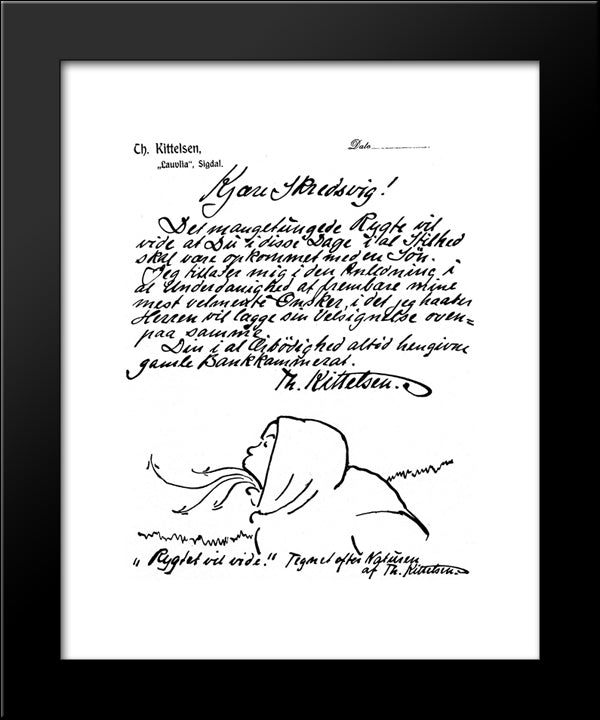 Th. Kittelsen,
„Lauvlia“, Sigdal.
Dato
Kjære Skredsvig!
Det mangetungede Rygte vil
vide at Du i disse Dage i al Stilhed
skal være opkommet med en Søn.
Jeg tillader mig i den Anledning i
al Underdanighed at frembære mine
mest velmente Ønsker, i det jeg haaber
Herren vil lægge sin Velsignelse oven=
paa samme
Din i al Ærbödighed altid hengivne
gamle Bankkammerat.
Th. Kittelsen.
„Rygtet vil vide.“ Tegnet efter Naturen
af Th. Kittelsen.